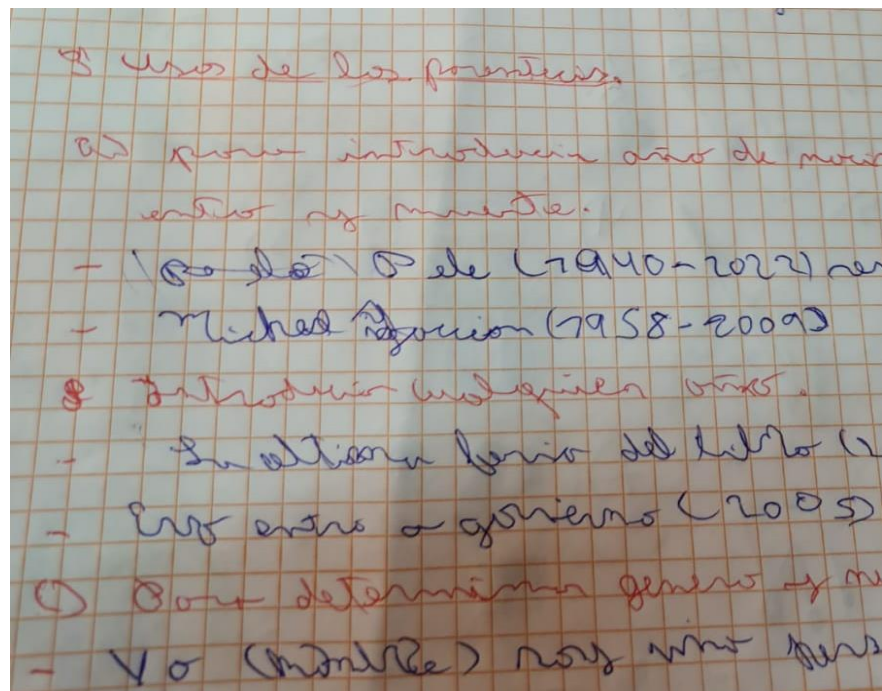 Usos de los parentesis.
a) para introducir año de naci
ento y muerte.
- Pele (1940-2022)
- Michael (1958-2009)
Introducir cualquier año.
- La ultima feria del libro (2
- Evo entro a govierno (2005)
C) Para determinar genero y
- Yo (nombre) soy una pers